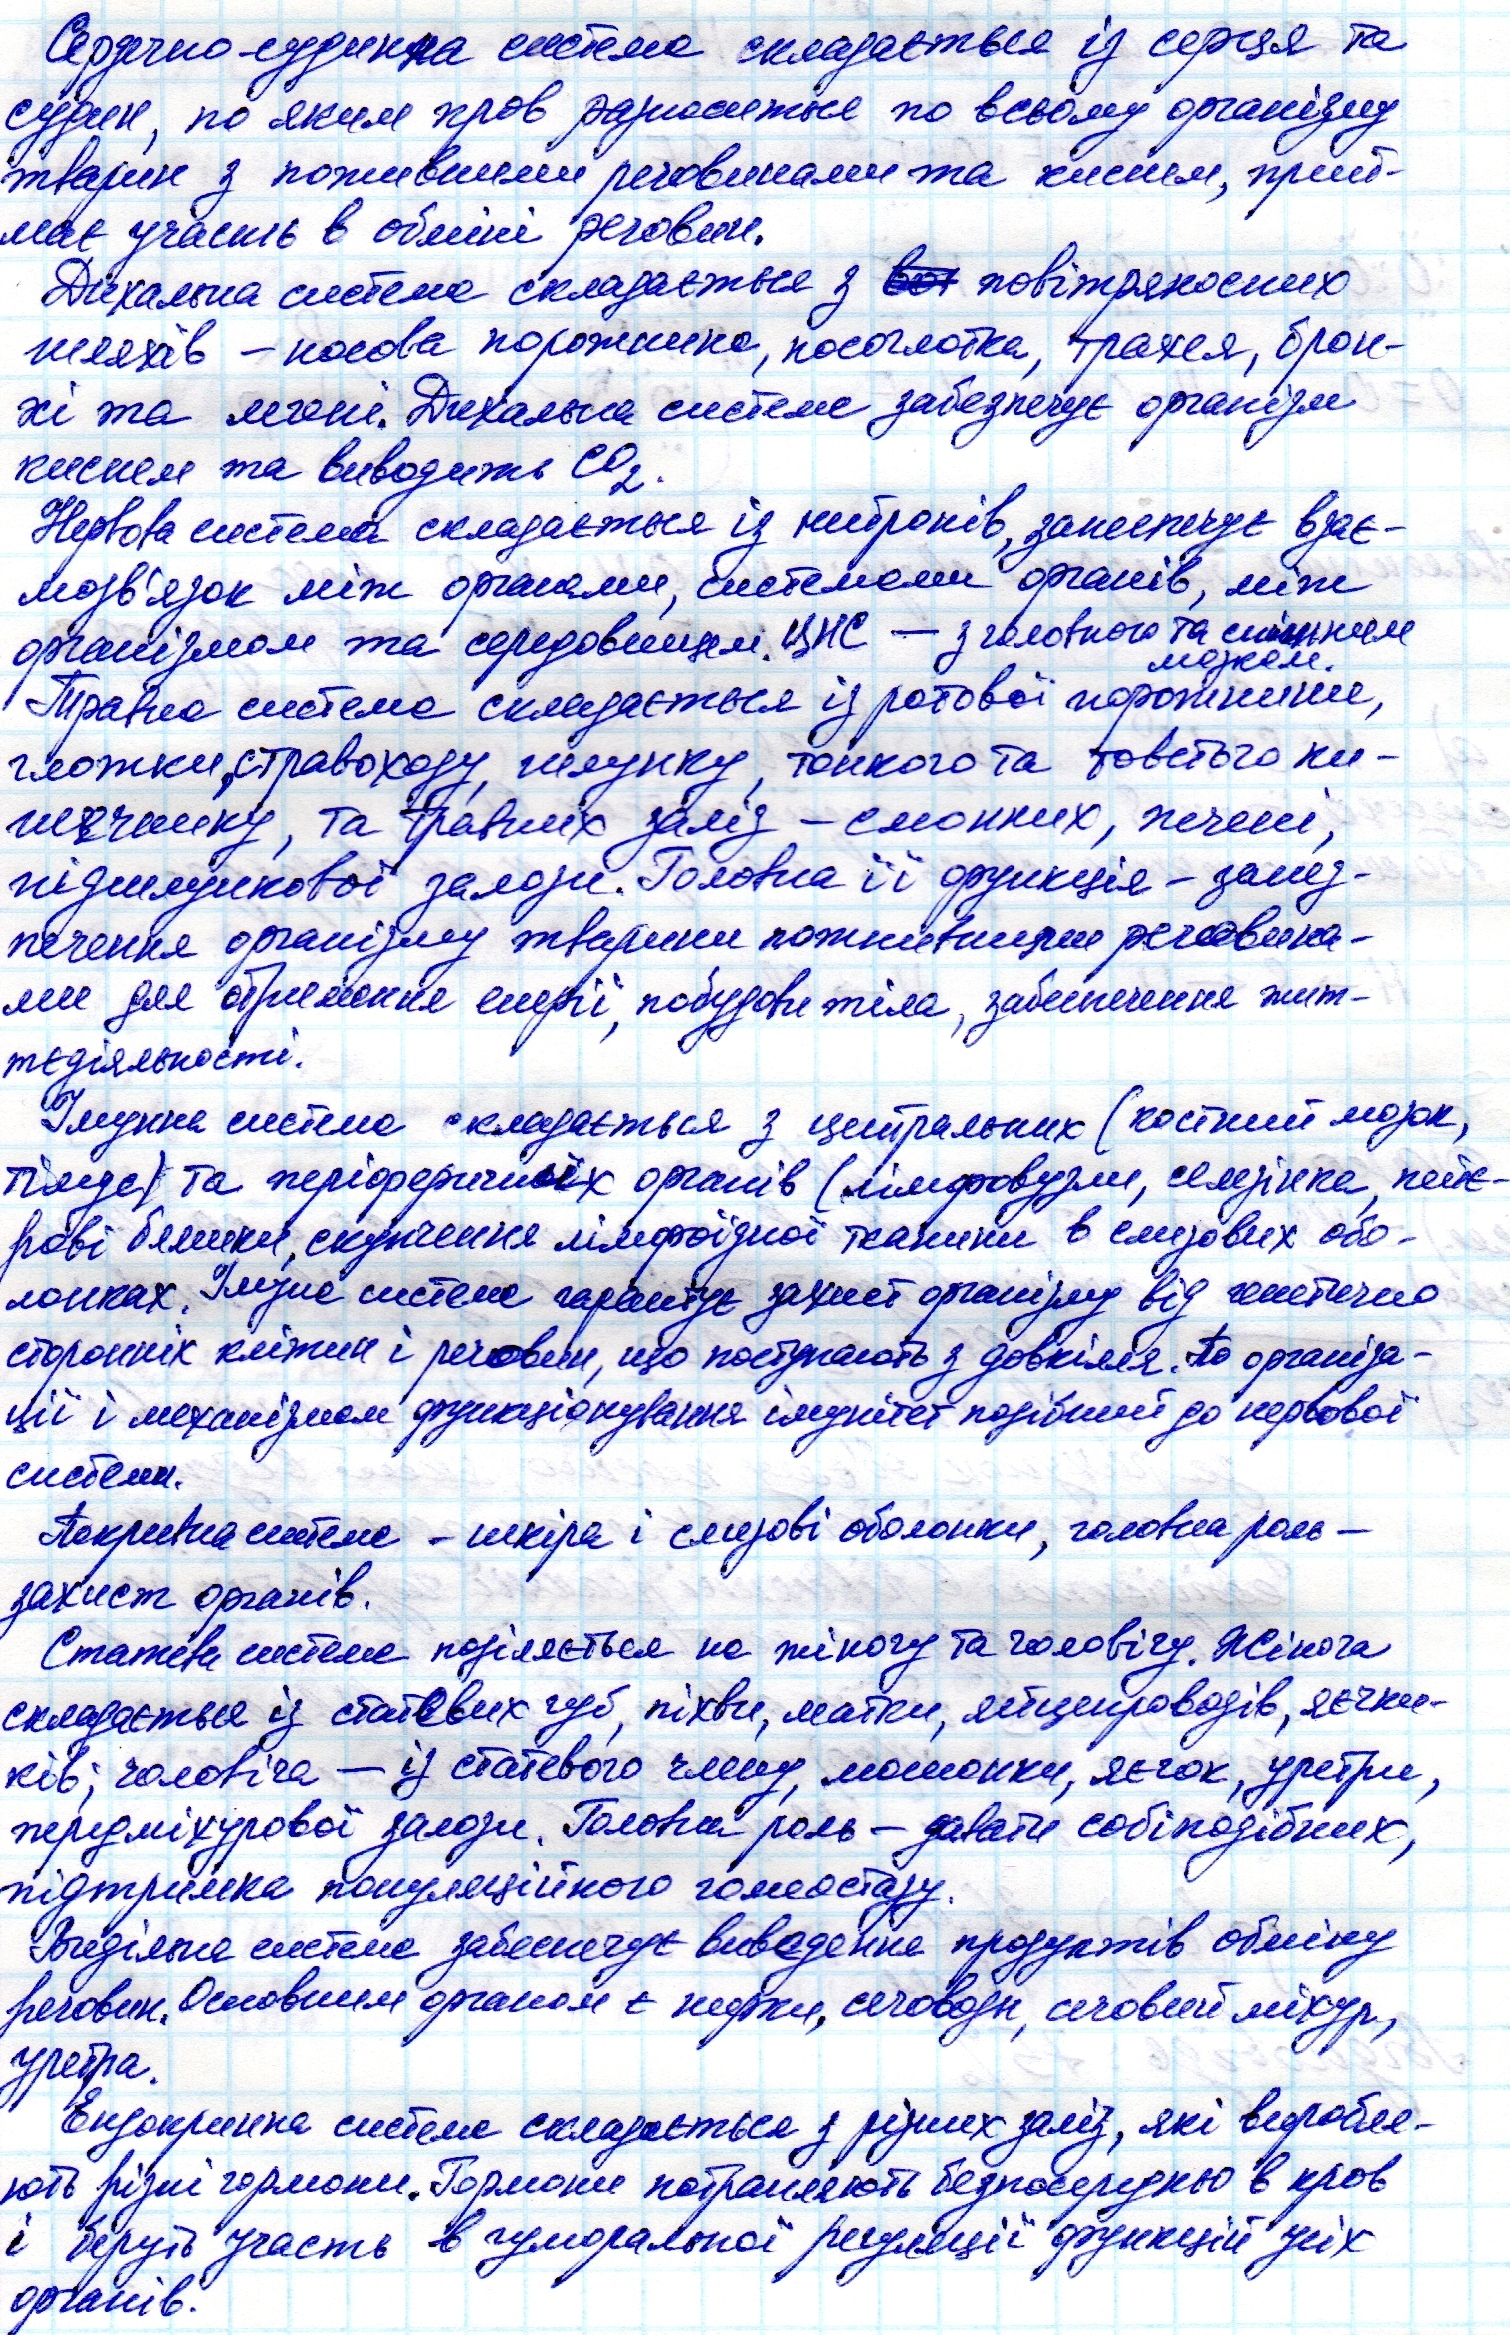 Сердечно-судинна система складається із серця та
судин, по яким кров разноситься по всьому організму
тварин з поживними речовинами та киснем, прий-
має участь в обміні речовин.
Дихальна система складається з повітряносних
шляхів – носова порожнина, носоглотка, трахея, брон-
хі та легені. Дихальна система забезпечує організм
киснем та виводить CO₂.
Нервова система складається із нейронів, занеспечує взає-
мозв'язок між органами, системами органів, між
організмом та середовищем. ЦНС – з головного та спинним
мозком.
Травна система складається із ротової порожнини,
глотки, стравоходу, шлунку, тонкого та товстого ки-
шечнику, та травних заліз – слюнних, печені,
підшлункової залози. Головна її функція –
печення організму тварини поживними речовина-
ми для отримання енергії, побудови тіла, забеспечення жит-
тєдіяльності.
Імунна система складається з центральних (костний мозок,
тімус) та періферичних органів (лімфовузли, селезінка, пейє-
рові бляшки, скупчення лімфоїдної тканини в слизових обо-
лонках. Імуна система гарантує захист організму від генетично
сторонніх клітин і речовин, що поступають з довкілля. По організа-
ції і механізмом функціонування імунітет подібний до нервової
системи.
Покривна система – шкіра і слизові оболонки, головна роль –
захист органів.
Статева система поділяється на жіночу та чоловічу. Жіноча
складається із статевих губ, піхви, матки, яйцепроводів, яєчни-
ків; чоловіча – із статевого члену, мошонки, яєчок, уретри,
передміхурової залози. Головна роль – давати собіподібних,
підтримка популяційного гомеостазу.
Видільна система забеспечує виведення продуктів обміну
речовин. Основним органом є нирки, сечоводи, сечовий міхур,
уретра.
Ендокринна система складається з різних заліз, які виробля-
ють різні гормони. Гормони потрапляють безпосередньо в кров
і беруть участь в гуморальної регуляції функцій усіх
органів.